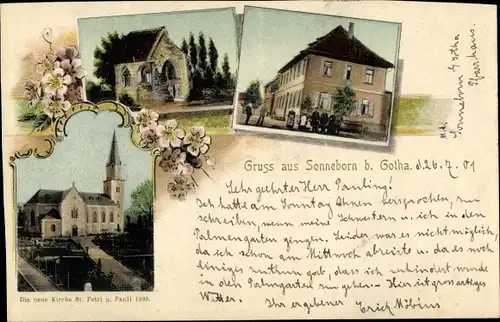 Gruss aus Sonneborn b. Gotha. d. 26. 7. 01
Sehr geehrter Herr Pauling!
Ich hatte am Sonntag Ihnen versprochen, zu
schreiben, wenn meine Schwestern u. ich in den
Palmengarten gingen. Leider war es nicht möglich,
da ich schon am Mittwoch abreiste u. da es noch
einiges zu thun gab, dass ich verhindert wurde
in den Palmgarten zu gehen. – Hier ist grossartiges
Wetter. Ihr ergebener Erich Möbius
Die neue Kirche St. Petri u. Pauli 1898.
Sonneborn b/ Gotha
Pfarrhaus.